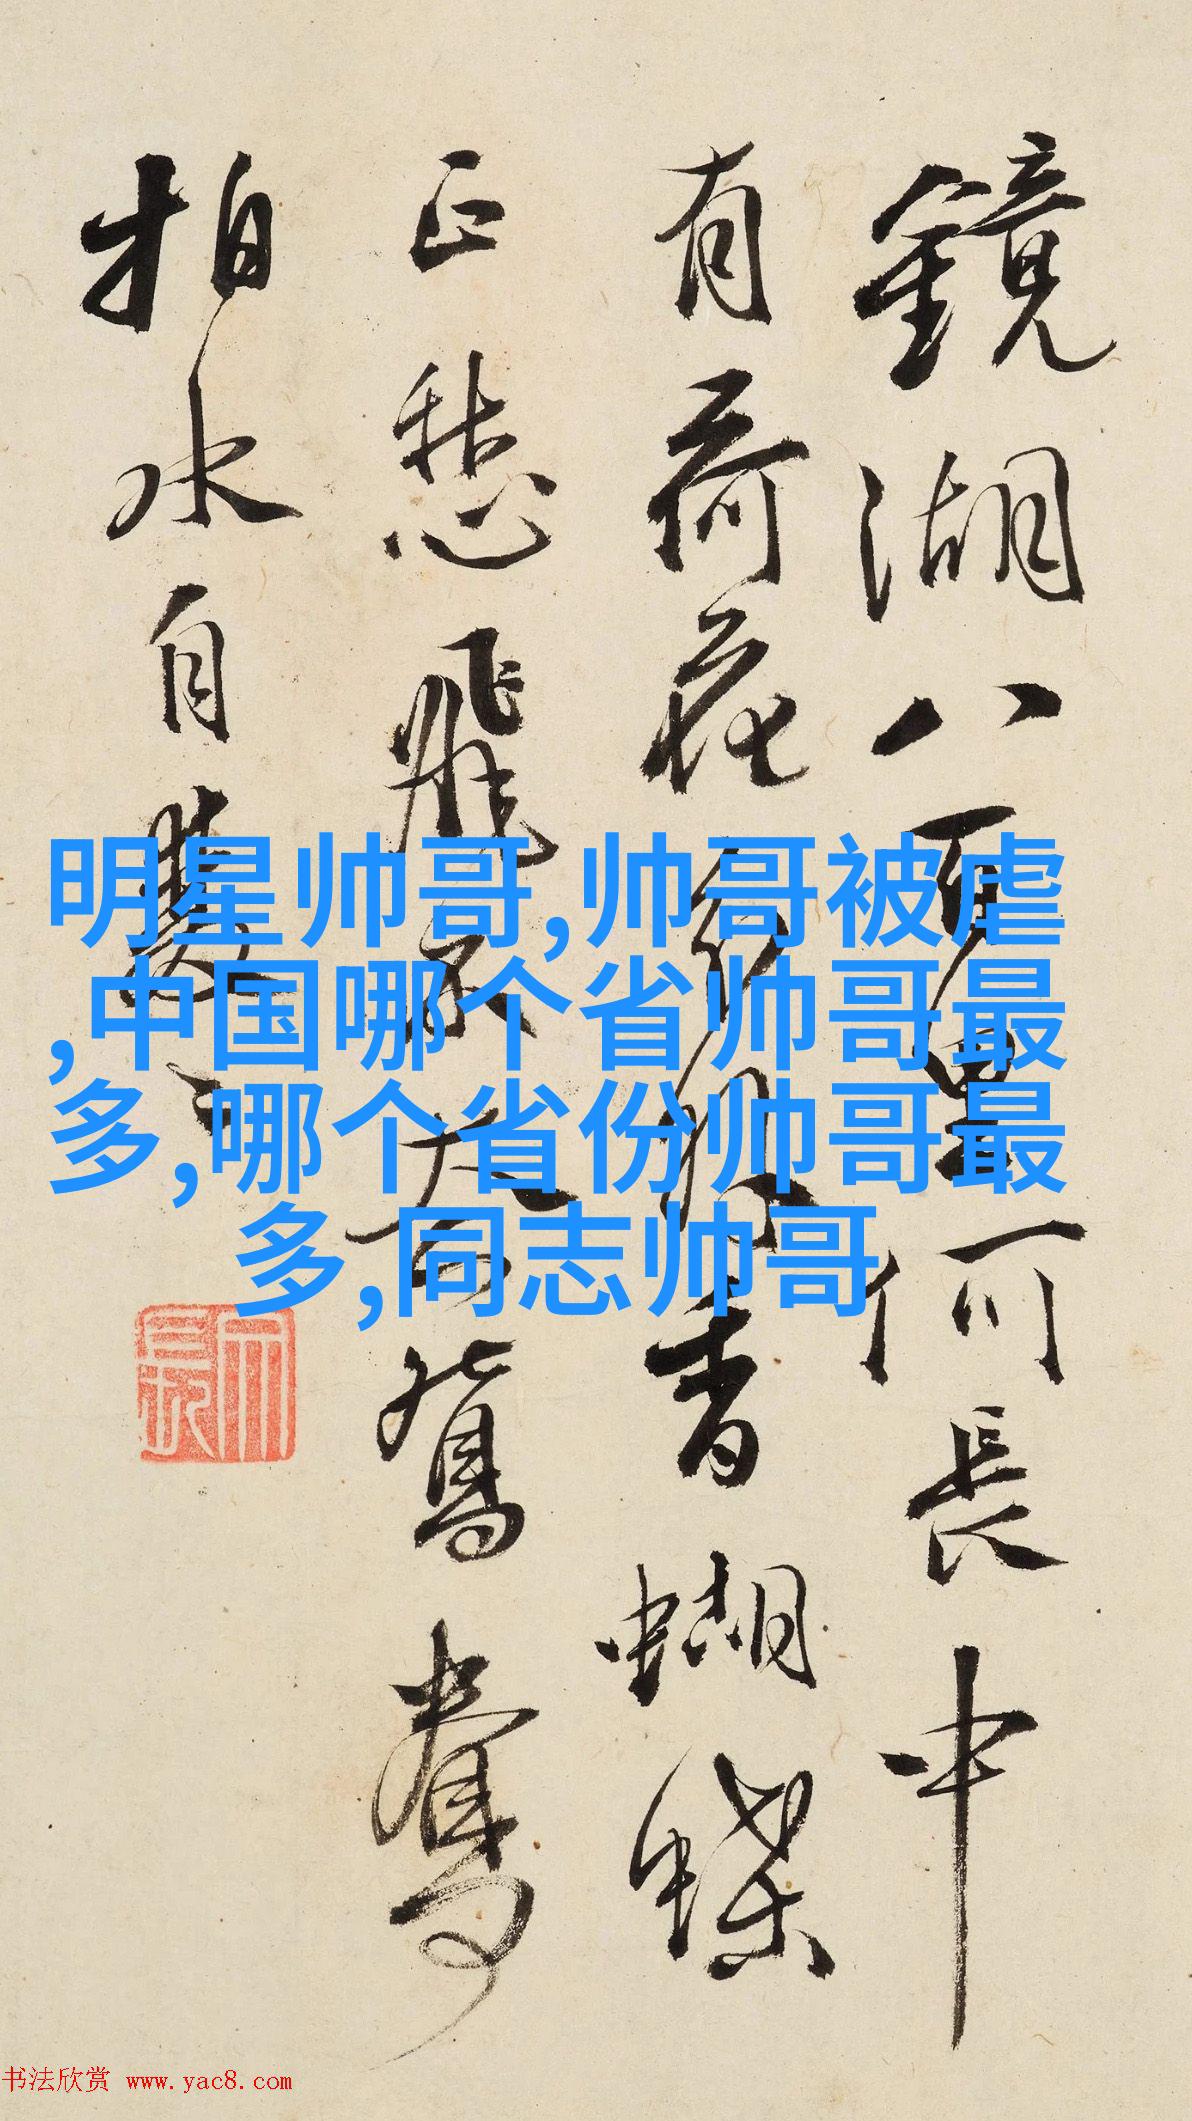 鏡湖八百里何長中
有荷花香蝴蝶
正愁飛不鴛鴦
拍水自雙
明星帅哥,帅哥被虐
,中国哪个省帅哥最
多,哪个省份帅哥最
多,同志帅哥
书法欣赏 www.yac8.com